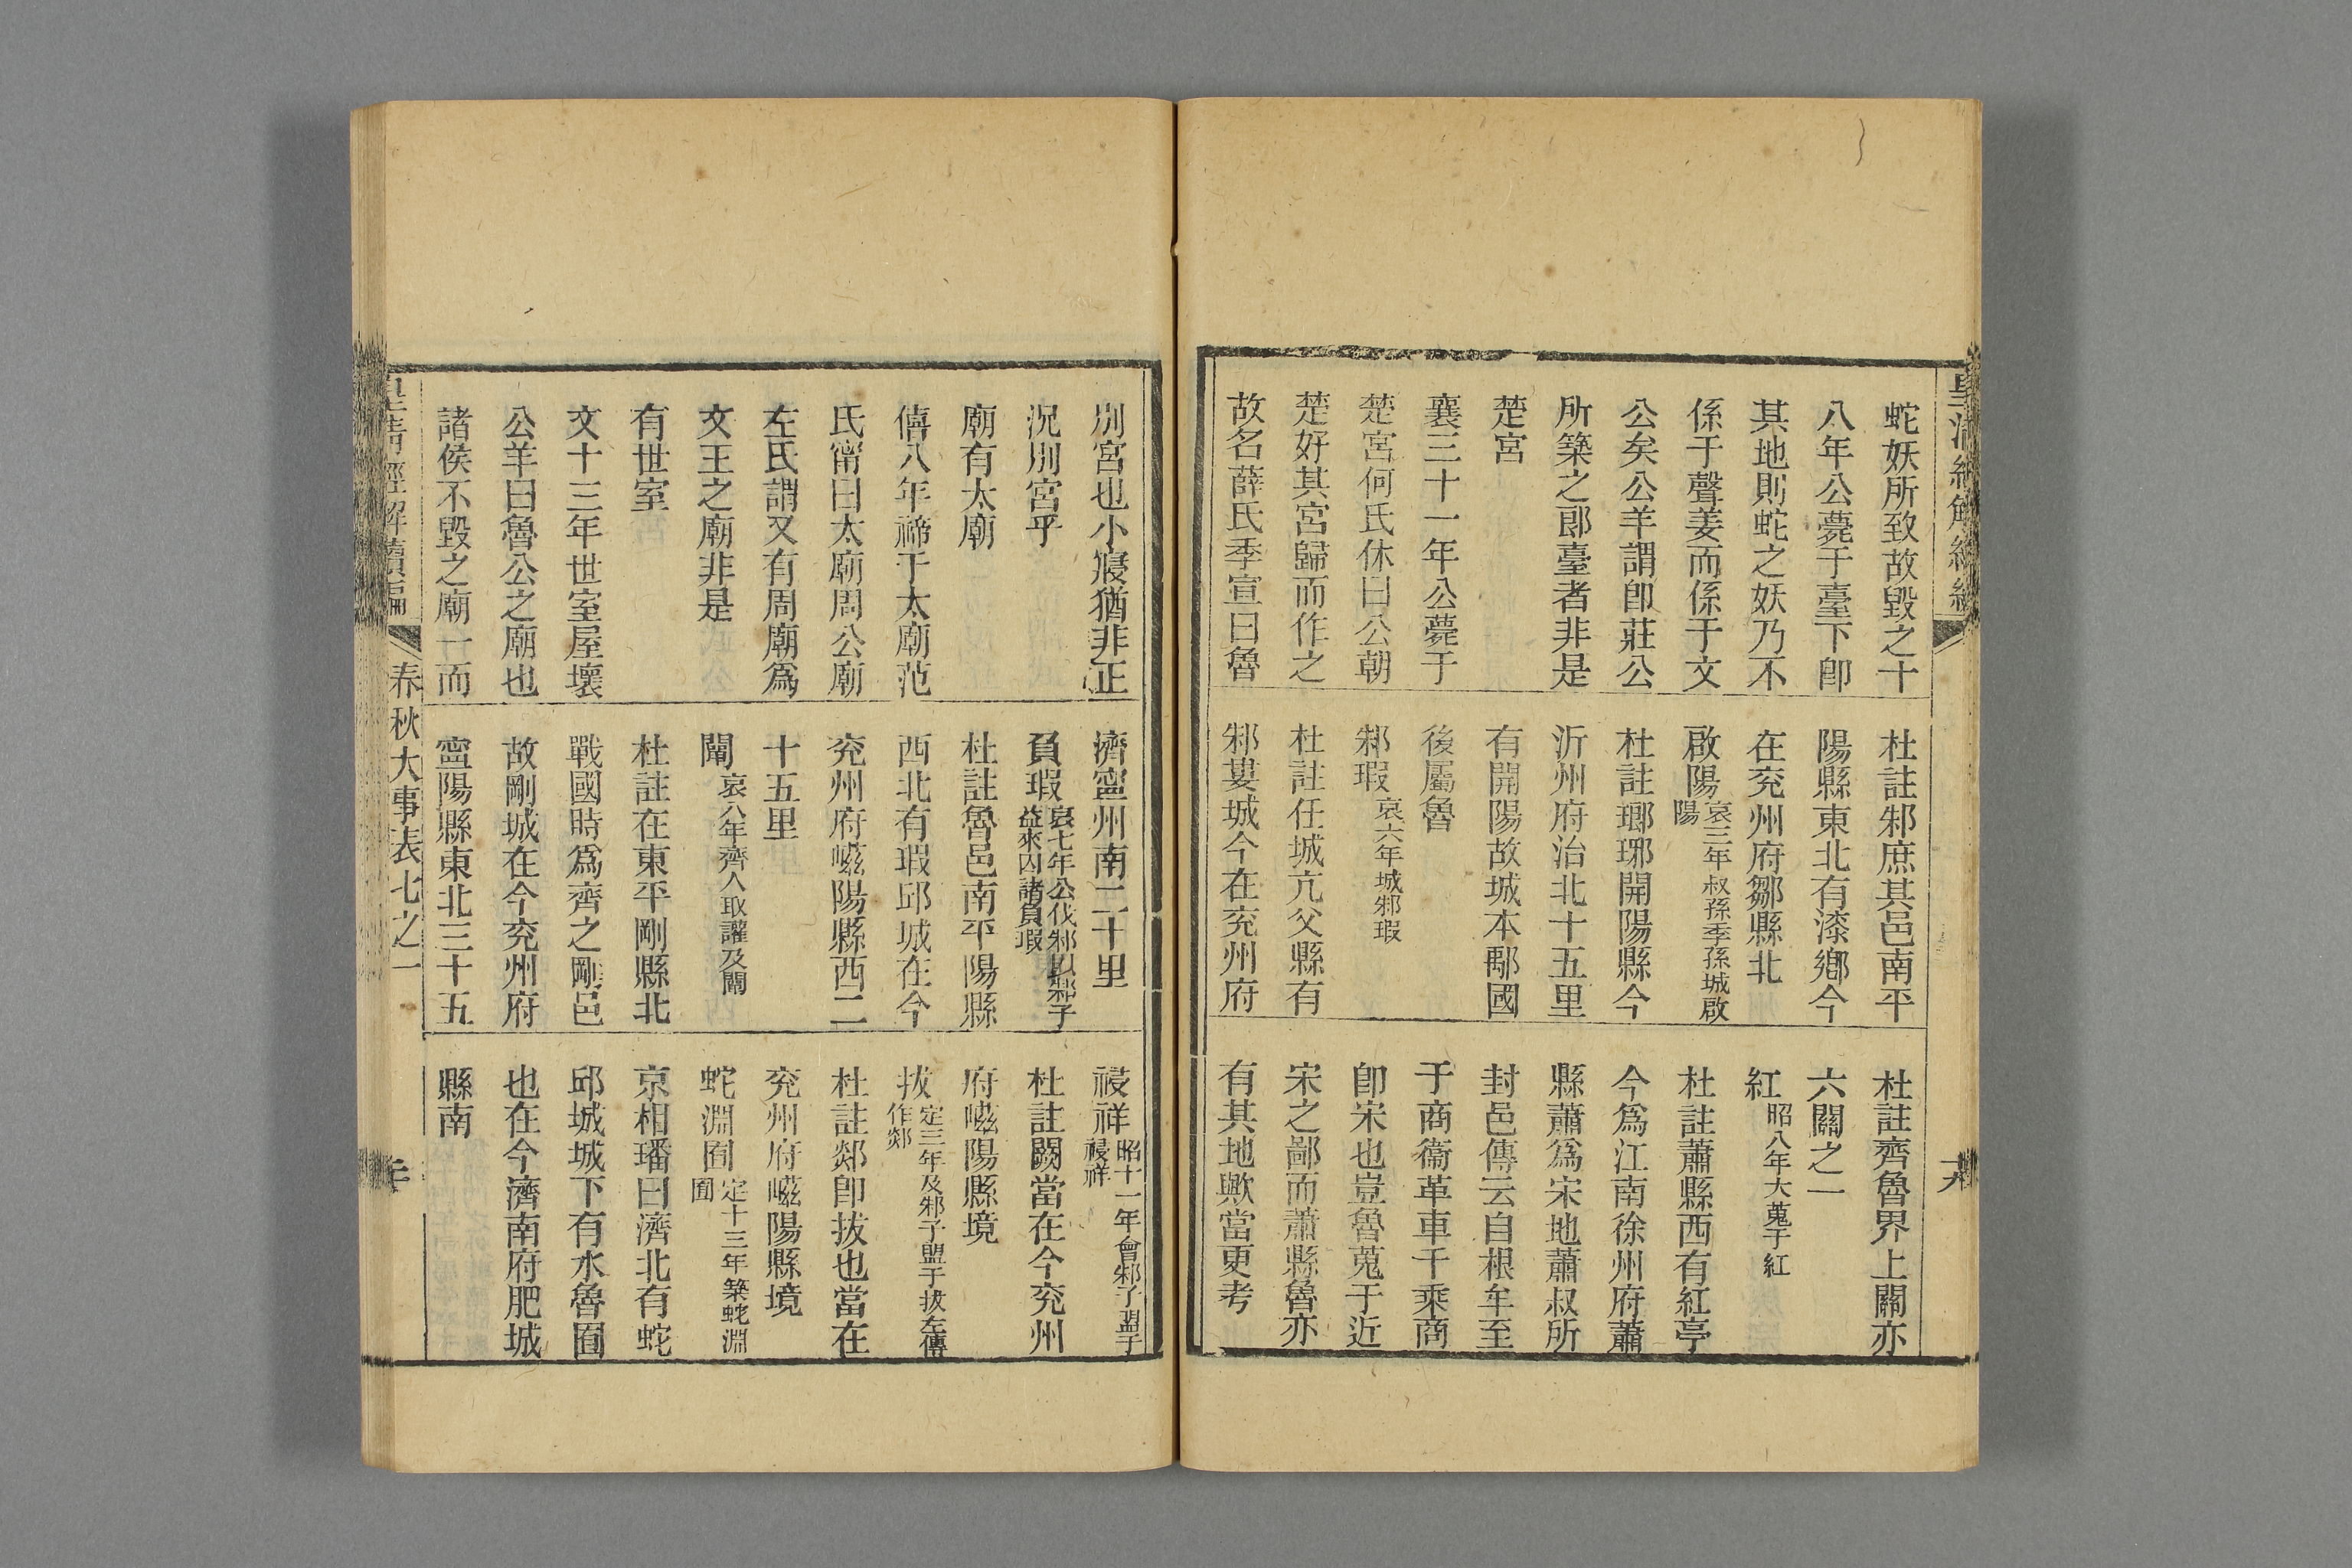 蛇妖所致故毀之十
八年公薨于臺下卽
其地則蛇之妖乃不
係于聲姜而係于文
公矣公羊謂卽莊公
所築之郞臺者非是
楚宮
襄三十一年公薨于
楚宮何氏休曰公朝
楚好其宮歸而作之
故名薛氏季宣曰魯
杜註邾庶其邑南平
陽縣東北有漆鄉今
在兖州府鄒縣北
啟陽哀三年叔孫季孫城啟陽
杜註瑯琊開陽縣今
沂州府治北十五里
有開陽故城本鄅國
後屬魯
邾瑕哀六年城邾瑕
杜註任城亢父縣有
邾婁城今在兖州府
杜註齊魯界上關亦
六關之一
紅昭八年大蒐于紅
杜註蕭縣西有紅亭
今爲江南徐州府蕭
縣蕭爲宋地蕭叔所
封邑傳云自根牟至
于商衞革車千乘商
卽宋也豈魯蒐于近
宋之鄙而蕭縣魯亦
有其地歟當更考
別宮也小寢猶非正
況別宮乎
廟有太廟
僖八年禘于太廟范
氏甯曰太廟周公廟
左氏謂又有周廟爲
文王之廟非是
有世室
文十三年世室屋壞
公羊曰魯公之廟也
諸侯不毀之廟一而
濟寧州南二十里
負瑕哀七年公伐邾以邾子益來囚諸負瑕
杜註魯邑南平陽縣
西北有瑕邱城在今
兖州府嵫陽縣西二
十五里
闡哀八年齊人取讙及闡
杜註在東平剛縣北
戰國時爲齊之剛邑
故剛城在今兖州府
寧陽縣東北三十五
祲祥昭十一年會邾子盟于祲祥
杜註闕當在今兖州
府嵫陽縣境
拔定三年及邾子盟于拔左傳作郯
杜註郯卽拔也當在
兖州府嵫陽縣境
蛇淵囿定十三年築蛇淵囿
京相璠曰濟北有蛇
邱城城下有水魯囿
也在今濟南府肥城
縣南
皇淸經解續編
春秋大事表七之一